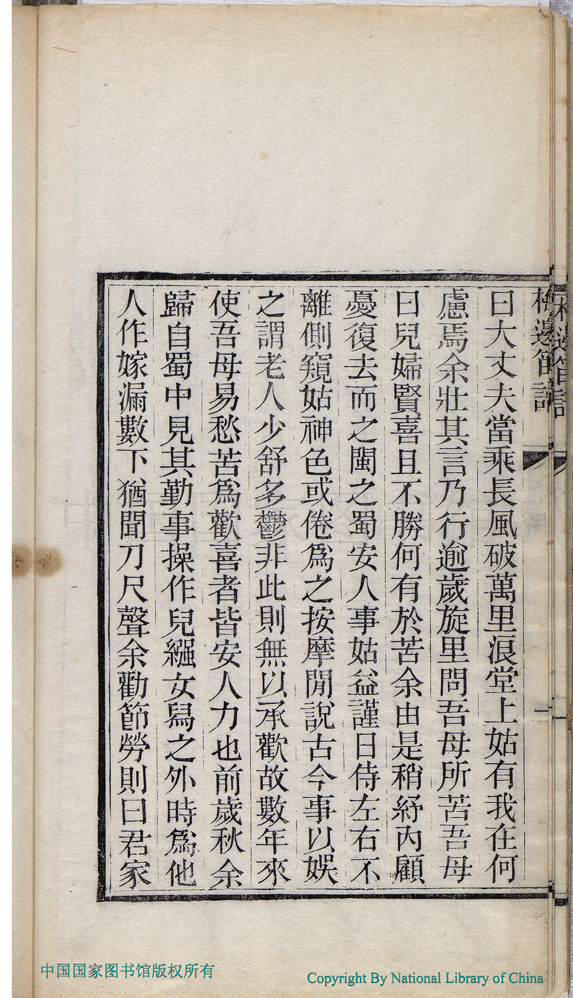 梅邊笛譜
一
曰大丈夫當乘長風破萬里浪堂上姑有我在何
慮焉余壯其言乃行逾歲旋里問吾母所苦吾母
曰兒婦賢喜且不勝何有於苦余由是稍紓內顧
憂復去而之閩之蜀安人事姑益謹日侍左右不
離側窺姑神色或倦爲之按摩閒說古今事以娛
之謂老人少舒多鬱非此則無以承歡故數年來
使吾母易愁苦爲歡喜者皆安人力也前歲秋余
歸自蜀中見其勤事操作兒繦女舄之外時爲他
人作嫁漏數下猶聞刀尺聲余勸節勞則曰君家
中国国家图书馆版权所有
Copyright By National Library of China